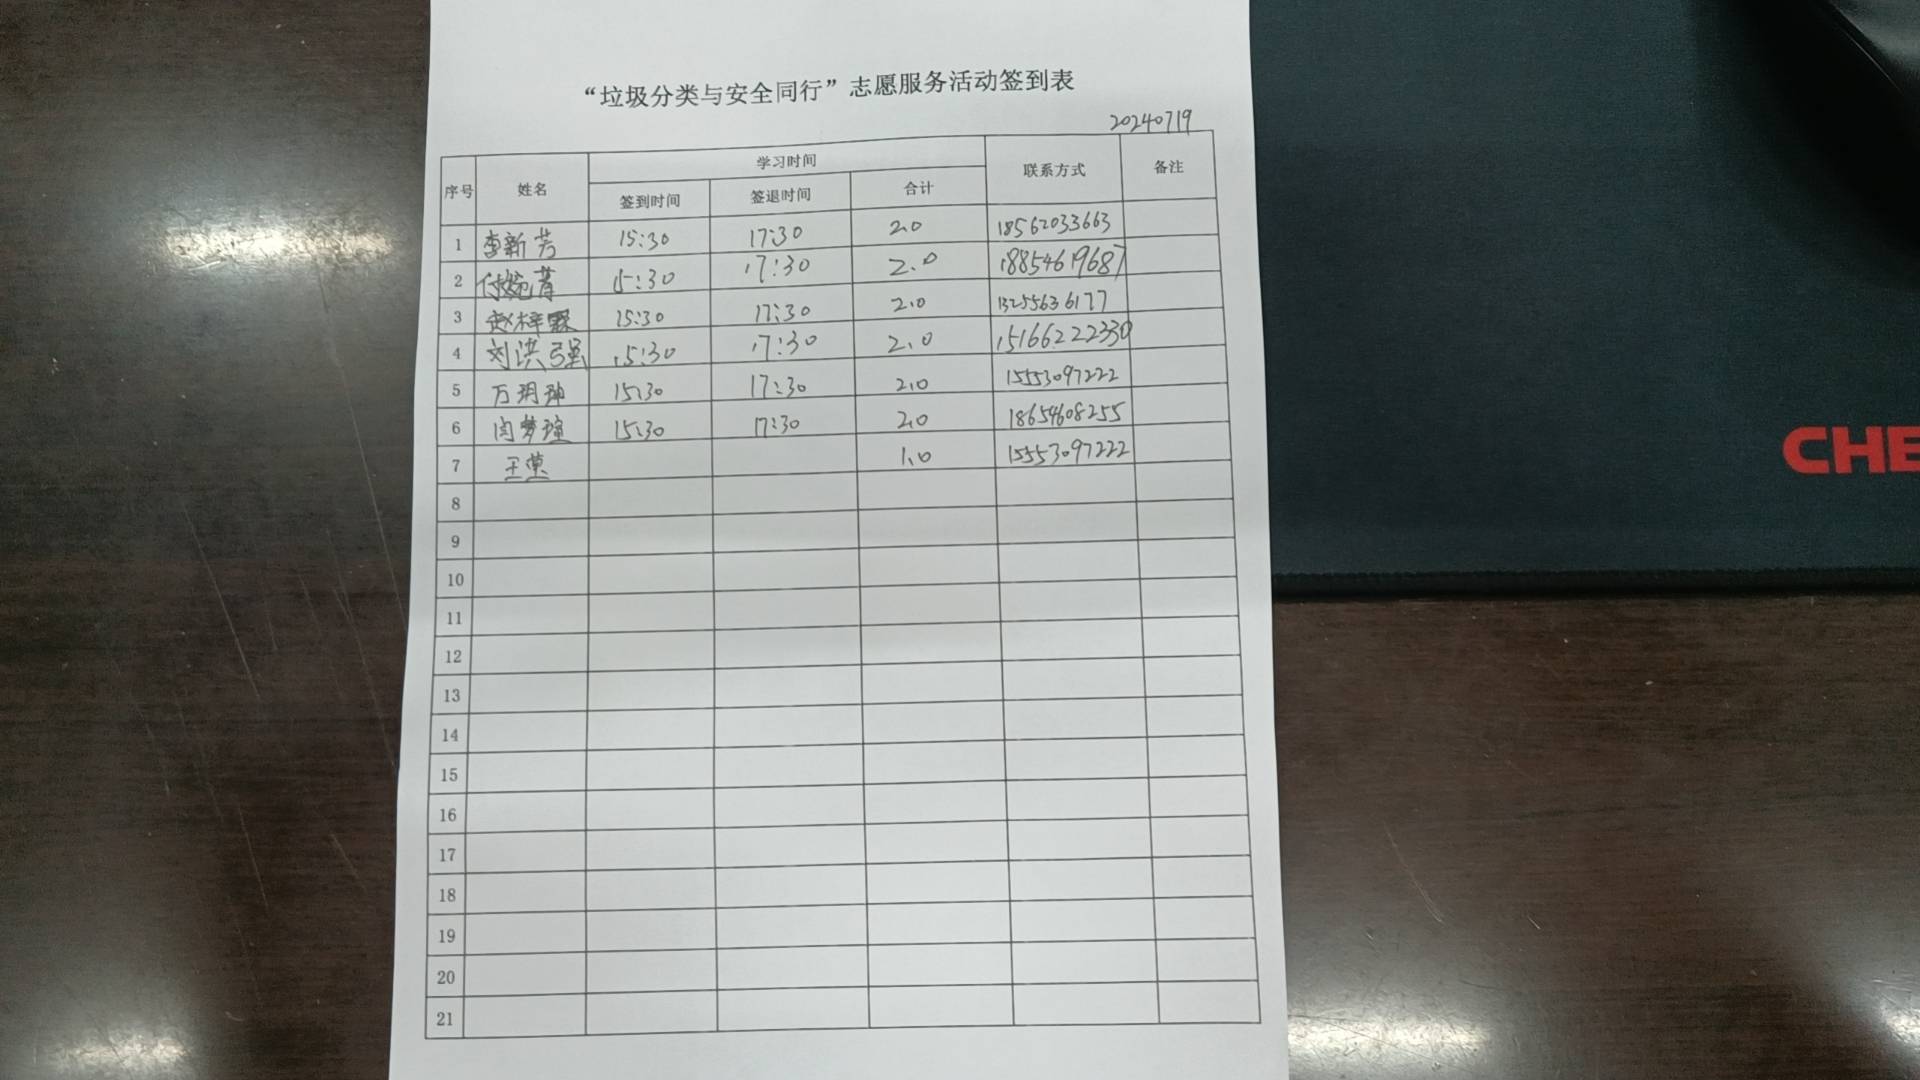 “垃圾分类与安全同行”志愿服务活动签到表
20240719
序号 姓名 学习时间 联系方式 备注
签到时间 签退时间 合计
1 李新芳 15:30 17:30 2.0 18562033663
2 付婉菁 15:30 17:30 2.0 18854619687
3 赵梓霖 15:30 17:30 2.0 13255636177
4 刘洪强 15:30 17:30 2.0 15166222330
5 万玥珅 15:30 17:30 2.0 15553097222
6 闫梦瑄 15:30 17:30 2.0 18654608255
7 王 1.0 15553097222
8
9
10
11
12
13
14
15
16
17
18
19
20
21
CHE